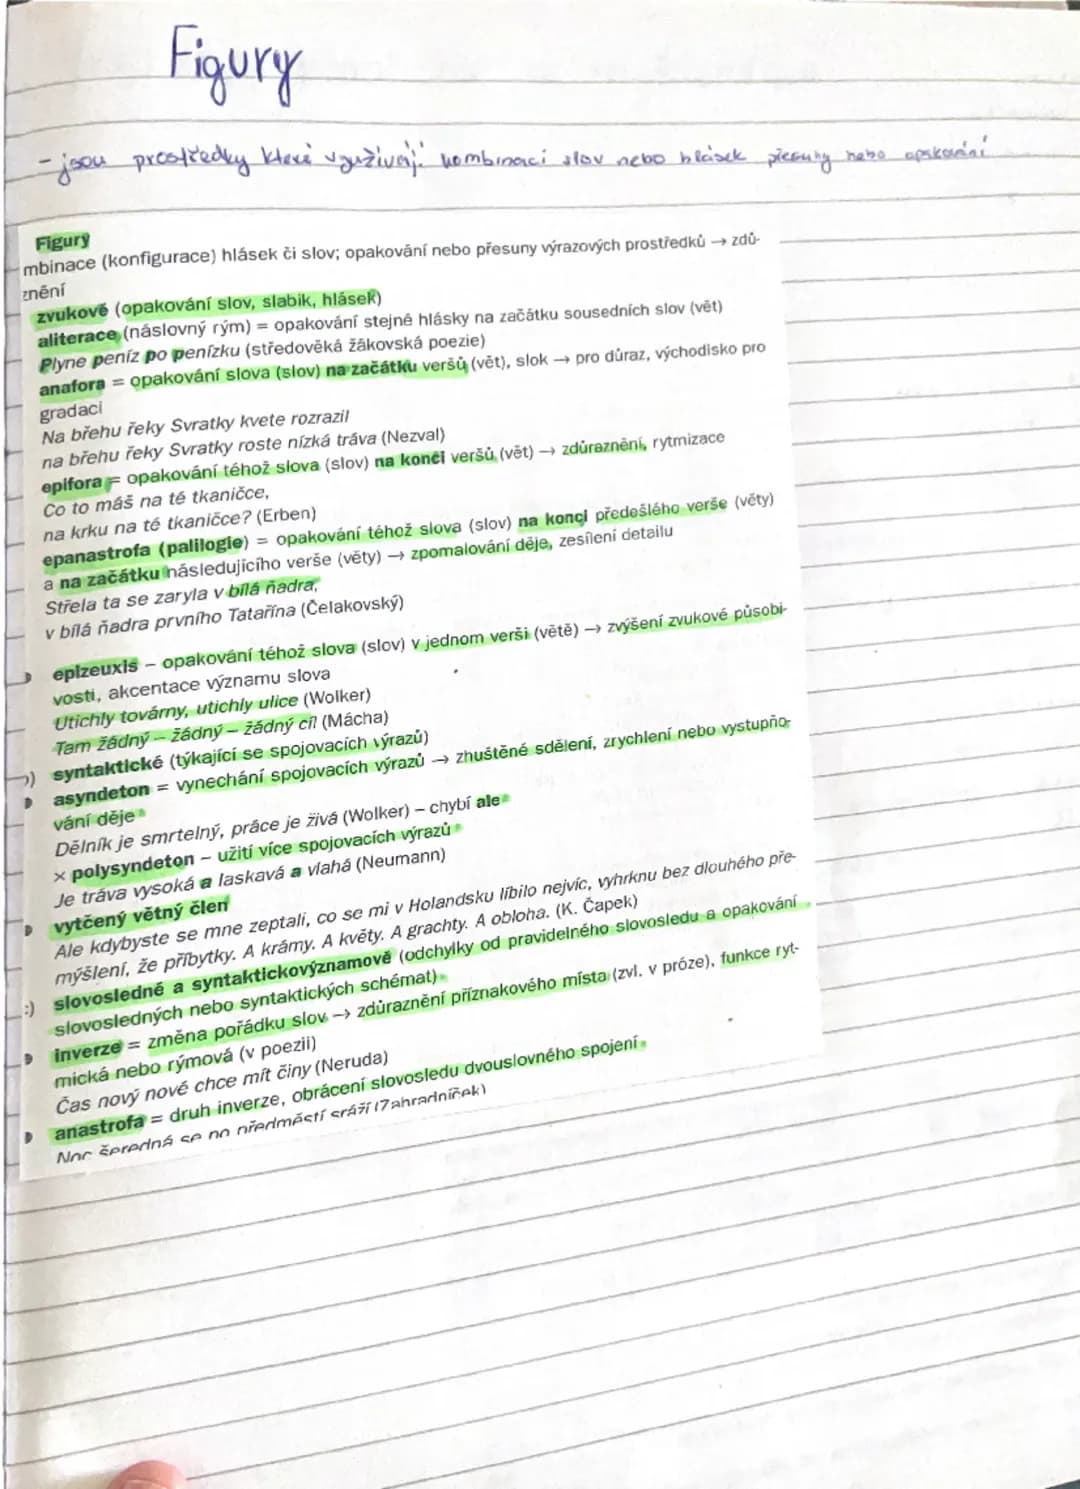 Figury
- jsou prostředky které využívají kombinaci slov nebo hlásek přesuny nebo opakování
Figury
mbinace (konfigurace) hlásek či slov; opakování nebo přesuny výrazových prostředků → zdů-
znění
zvukové (opakování slov, slabik, hlásek)
aliterace (náslovný rým) = opakování stejné hlásky na začátku sousedních slov (vět)
Plyne peníz po penízku (středověká žákovská poezie)
anafora = opakování slova (slov) na začátku veršů (vět), slok → pro důraz, východisko pro
gradaci
Na břehu řeky Svratky kvete rozrazil
na břehu řeky Svratky roste nízká tráva (Nezval)
epifora = opakování téhož slova (slov) na konci veršů (vět) → zdůraznění, rytmizace
Co to máš na té tkaničce,
na krku na té tkaničce? (Erben)
epanastrofa (palilogie) = opakování téhož slova (slov) na konci předešlého verše (věty)
a na začátku následujícího verše (věty) → zpomalování děje, zesílení detailu
Střela ta se zaryla v bílá ňadra,
v bílá ňadra prvního Tatařína (Čelakovský)
epizeuxis – opakování téhož slova (slov) v jednom verši (větě) → zvýšení zvukové působi-
vosti, akcentace významu slova
Utichly továrny, utichly ulice (Wolker)
Tam žádný – žádný – žádný cíl (Mácha)
syntaktické (týkající se spojovacích výrazů)
asyndeton = vynechání spojovacích výrazů → zhuštěné sdělení, zrychlení nebo vystupňo-
vání děje
Dělník je smrtelný, práce je živá (Wolker) – chybí ale
× polysyndeton – užití více spojovacích výrazů
Je tráva vysoká a laskavá a vlahá (Neumann)
vytčený větný člen
Ale kdybyste se mne zeptali, co se mi v Holandsku líbilo nejvíc, vyhrknu bez dlouhého pře-
mýšlení, že příbytky. A krámy. A květy. A grachty. A obloha. (K. Čapek)
:) slovosledné a syntaktickovýznamové (odchylky od pravidelného slovosledu a opakování
slovosledných nebo syntaktických schémat)
inverze = změna pořádku slov → zdůraznění příznakového místa (zvl. v próze), funkce ryt-
mická nebo rýmová (v poezii)
Čas nový nové chce mít činy (Neruda)
anastrofa = druh inverze, obrácení slovosledu dvouslovného spojení
Noc šeredná se po předměstí sráží (Zahradníček)